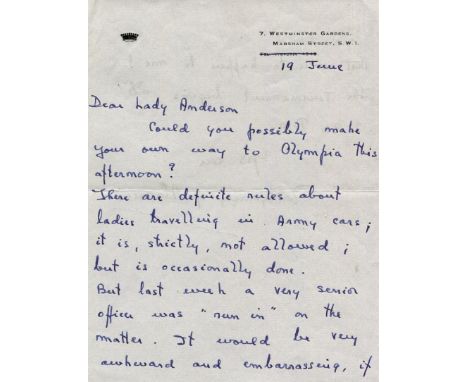 7, Westminster Gardens,
Marsham Street, S.W.1.
19 June
Dear Lady Anderson
Could you possibly make
your own way to Olympia this
afternoon?
There are definite rules about
ladies travelling in Army cars;
it is, strictly, not allowed;
but is occasionally done.
But last week a very senior
officer was "run in" on the
matter. It would be very
awkward and embarrassing, if